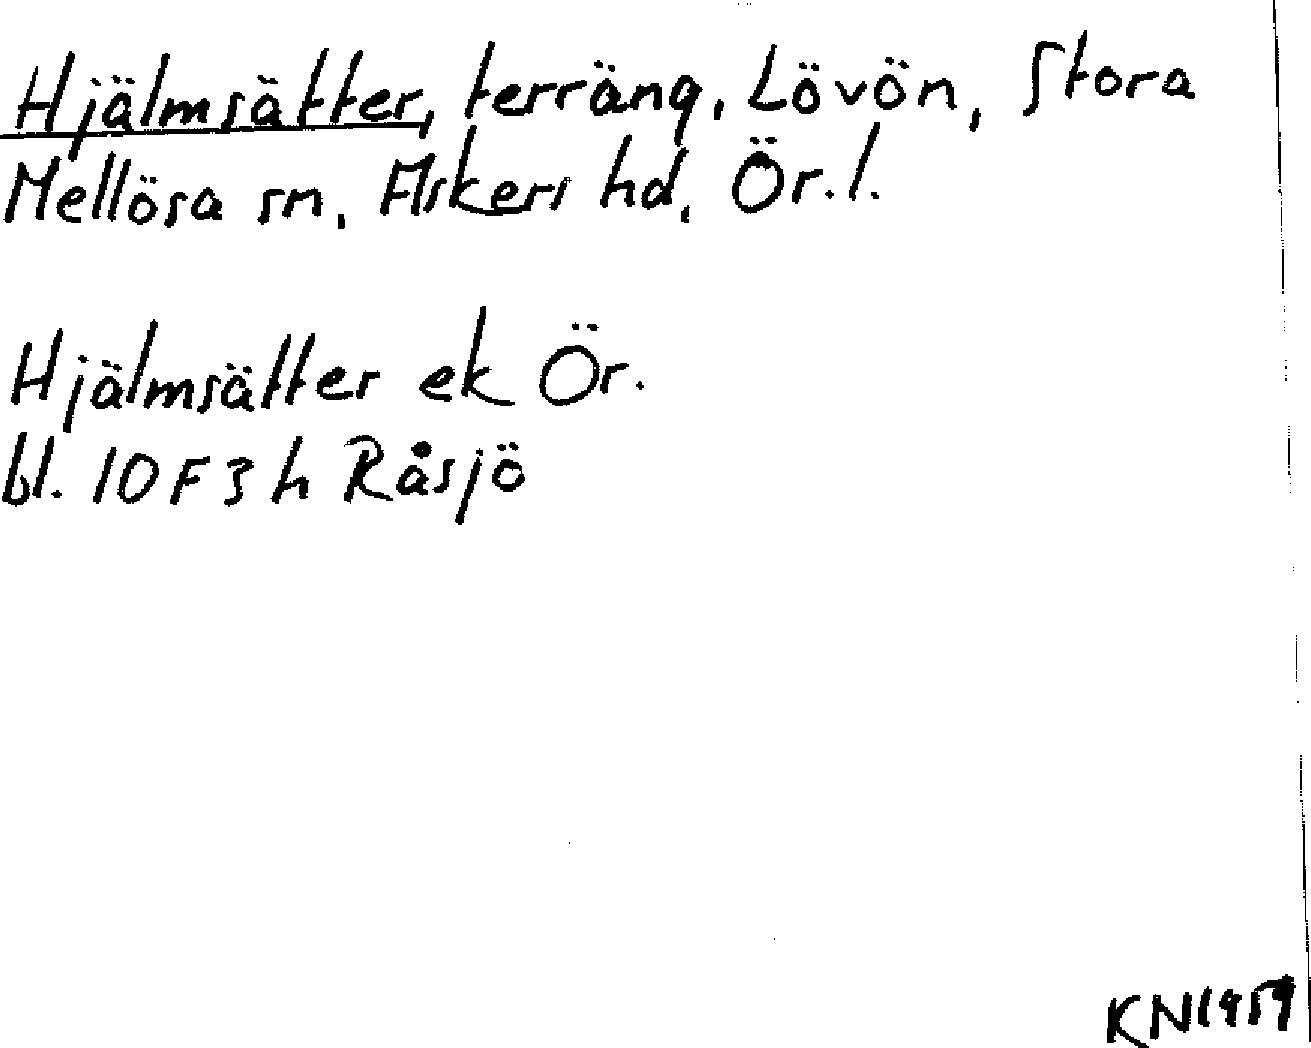 Hjälmsätter, terräng, Lövön, Stora
Mellösa sn, Askers hd, Ör. l.
Hjälmsätter ek Ör.
bl. 10 F 3 h Råsjö
KN 1959